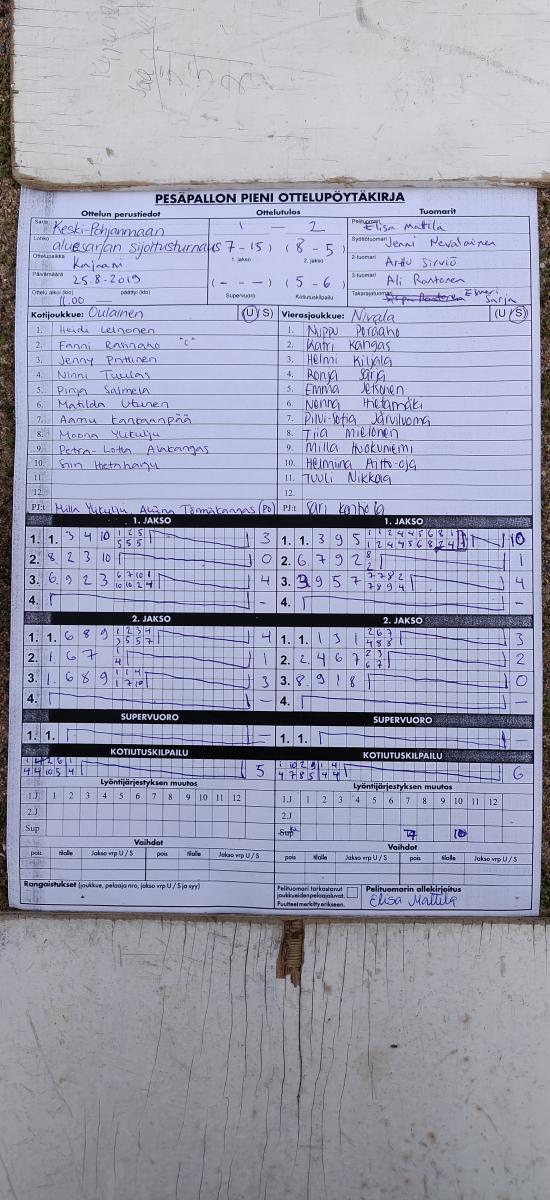 PESÄPALLON PIENI OTTELUPÖYTÄKIRJA
Ottelun perustiedot Ottelutulos Tuomarit
Sarja Keski-Pohjanmaan 1 — 2 Pelituomari Elisa Mattila
Lohko aluesarjan sijoitusturnaus (7 - 15) (8 - 5) Syöttötuomari Jenni Nevalainen
1. jakso 2. jakso
Ottelupaikka Kajaani 2-tuomari Arttu Sirviö
Päivämäärä 25.8-2019 (- - -) (5 - 6) 3-tuomari Ali Rantonen
Ottelu alkoi (klo) 11.00 päättyi (klo) — Supervuoro Kotiutuskilpailu Takarajatuomari Elmeri Sarja
Kotijoukkue: Oulainen (U/S) Vierasjoukkue: Nivala (U/S)
1. Heidi Leinonen 1. Nuppu Peräaho
2. Fanni Rahnaho "C" 2. Katri Kangas
3. Jenny Prittinen 3. Helmi Kiljala
4. Ninni Tuulas 4. Ronja Sarja
5. Pinja Salmela 5. Emma
6. Matilda Utunen 6. Nenna Hietamäki
7. Aamu Kankaanpää 7. Pilvi-Sofia Järviluoma
8. Moona Yukulju 8. Tiia Mielonen
9. Petra-Lotta Alakangas 9. Milla Huokuniemi
10. Siiri Hietaharju 10. Helmiina Aitto-oja
11. 11. Tuuli Nikkola
12. 12.
PJ:t Milla Yukulju, Tömäkangas (PJ) PJ:t Sari
1. JAKSO 1. JAKSO
1. 1. 3 4 10 1 2 5 3 1. 1. 3 9 5 1 1 2 4 4 5 6 8 1 10
5 5 5 1 2 4 4 5 6 8 2 4
2. 8 2 3 10 0 2. 6 7 9 2 8 1
2
3. 6 9 2 3 6 7 10 1 4 3. 3 9 5 7 7 7 8 2 4
10 10 2 4 7 8 9 4
4. — 4. —
2. JAKSO 2. JAKSO
1. 1. 6 8 9 1 2 3 4 4 1. 1. 1 3 1 2 6 7 3
3 5 5 7 4 8 8
2. 1. 6 7 1 1 2. 2. 4 6 7 2 3 2
4 6 7
3. 1. 6 8 9 1 1 4 3 3. 8 9 1 8 0
1 7 10
4. — 4. —
SUPERVUORO SUPERVUORO
1. 1. — 1. 1. —
KOTIUTUSKILPAILU KOTIUTUSKILPAILU
1 4 2 6 1 5 1 10 2 9 1 4 6
4 4 10 5 4 4 7 8 5 4 4
Lyöntijärjestyksen muutos Lyöntijärjestyksen muutos
1.J 1 2 3 4 5 6 7 8 9 10 11 12 1.J 1 2 3 4 5 6 7 8 9 10 11 12
2.J 2.J
Sup Sup
Vaihdot Vaihdot
pois tilalle Jakso vrp U / S pois tilalle Jakso vrp U / S pois tilalle Jakso vrp U / S pois tilalle Jakso vrp U / S
Rangaistukset (joukkue, pelaaja nro, jakso vrp U / S ja syy)
Pelituomari tarkastanut joukkueiden pelaajaluvat.
Puutteet merkitty erikseen.
Pelituomarin allekirjoitus
Elisa Mattila